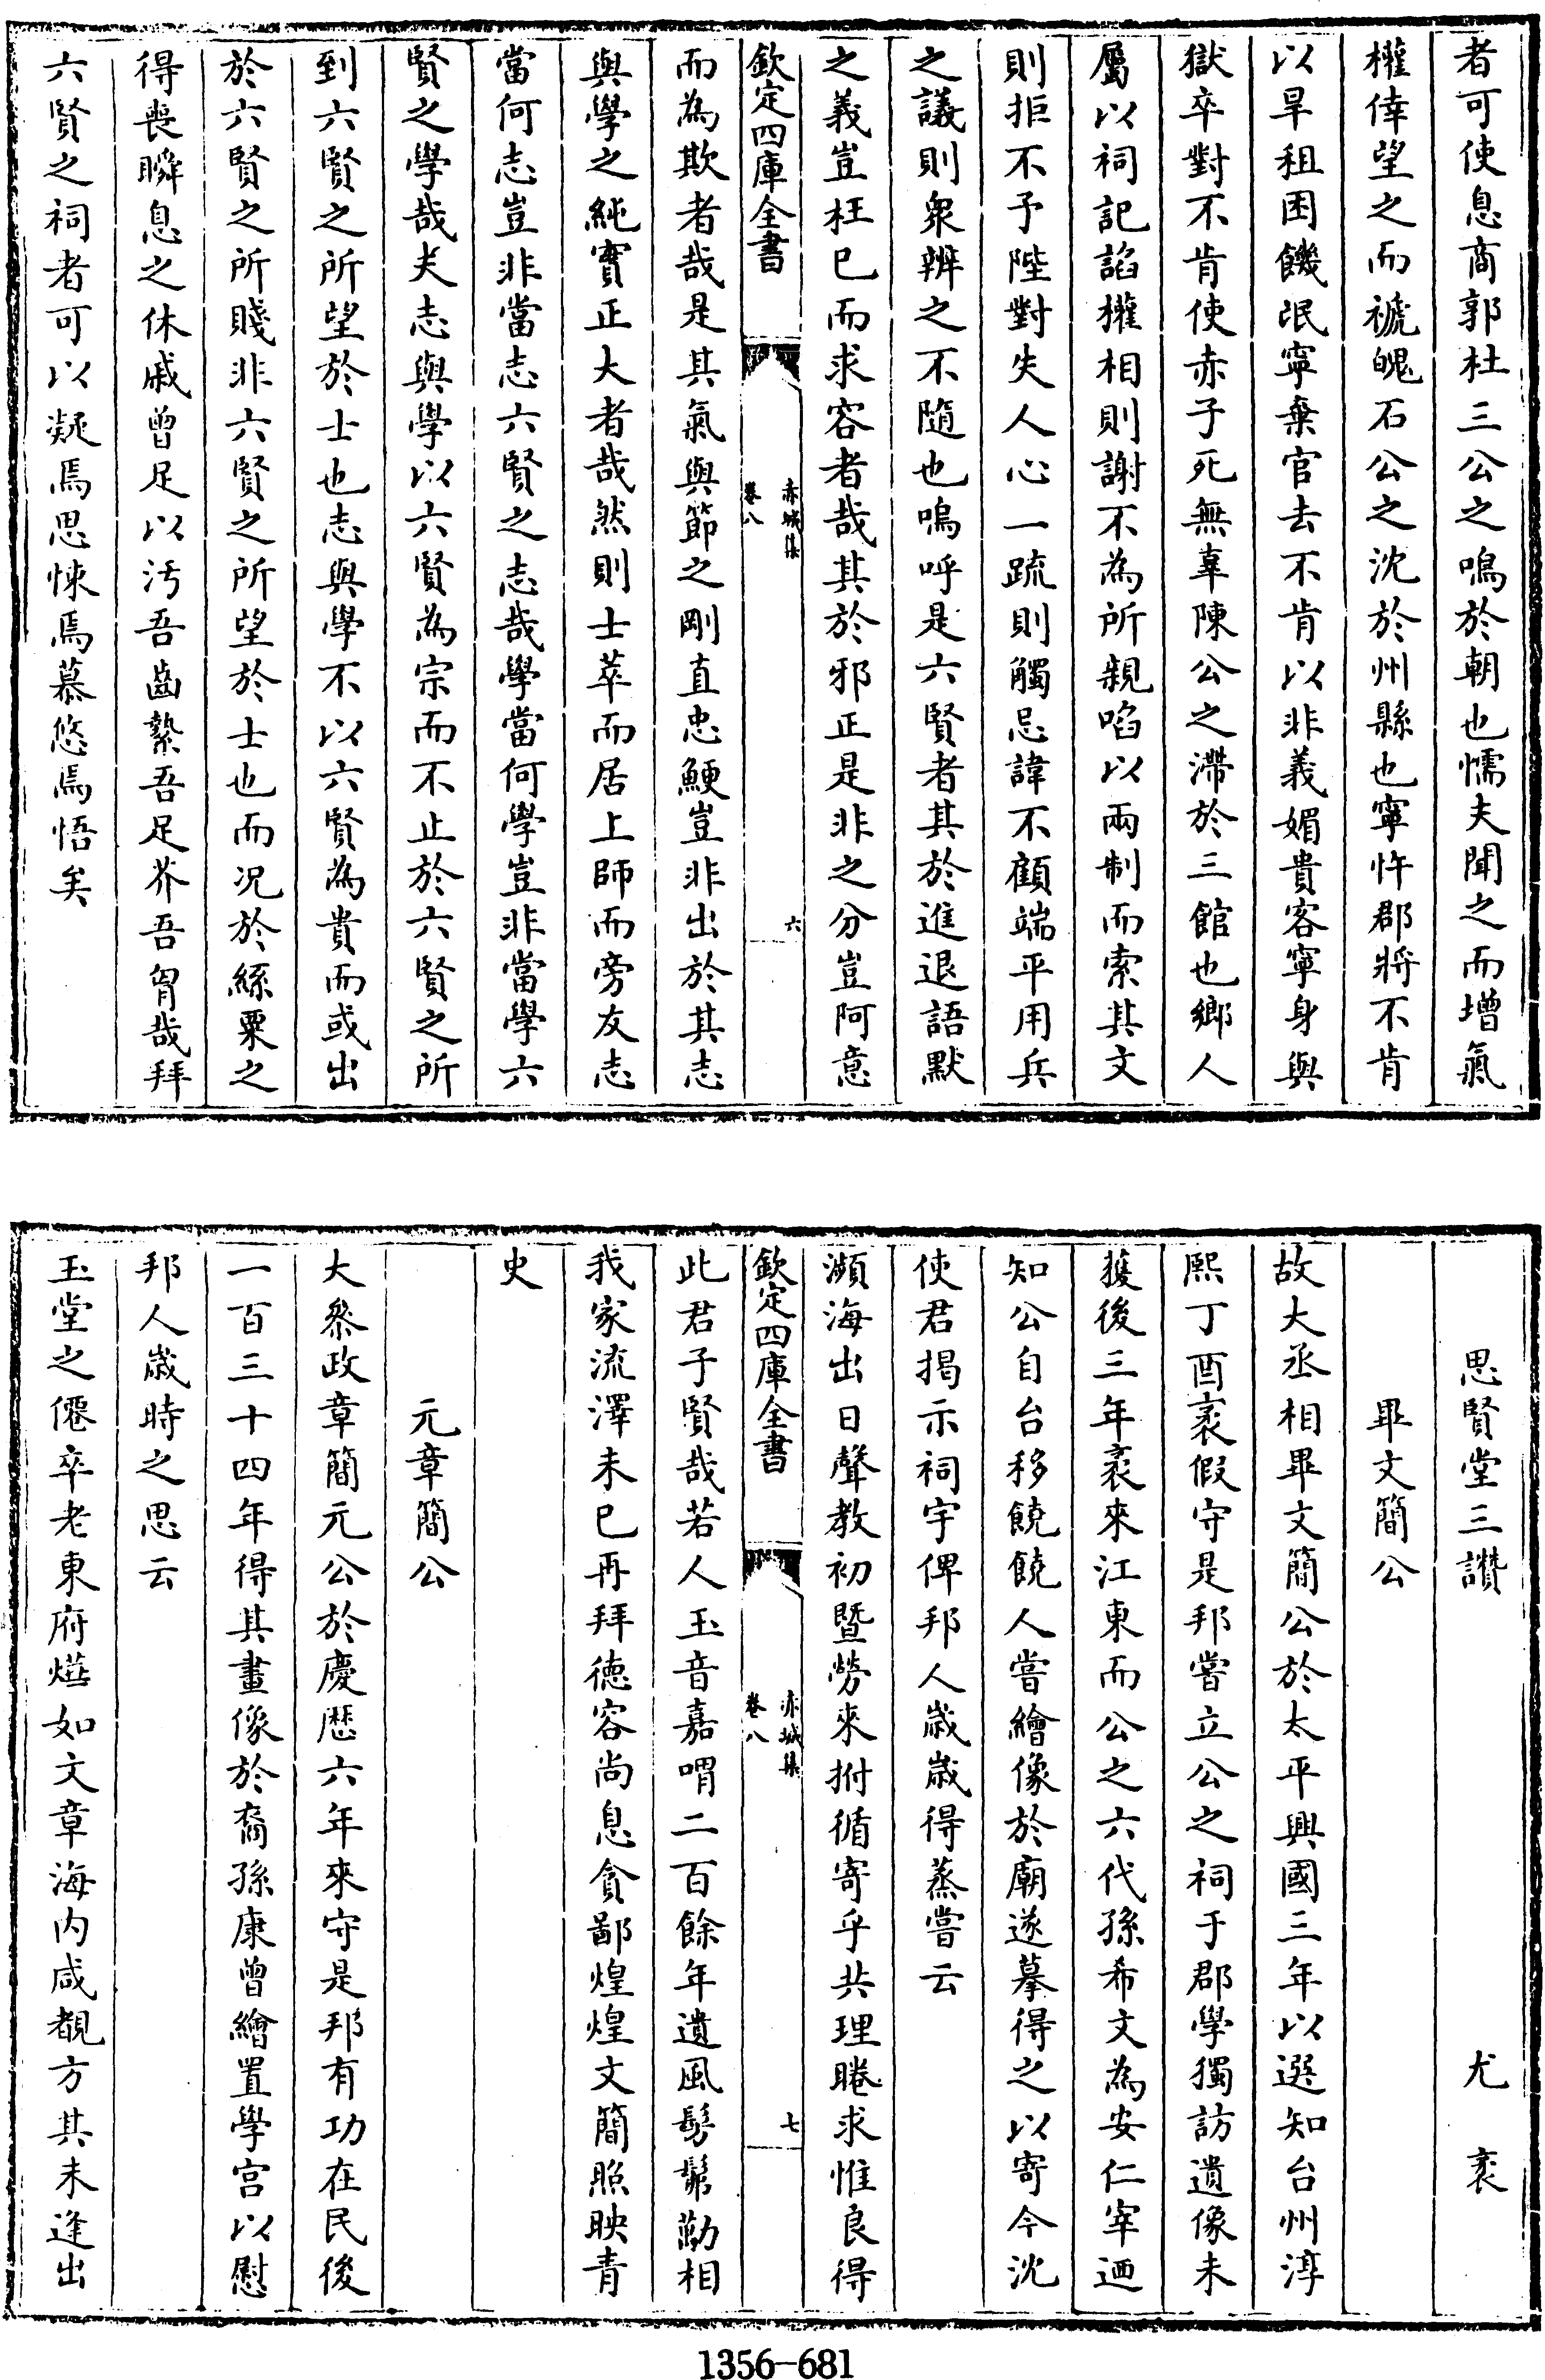 者可使息商郭杜三公之鳴於朝也懦夫聞之而增氣
權倖望之而褫魄石公之沈於州縣也寧忤郡將不肯
以旱租困饑氓寧棄官去不肯以非義媚貴客寧身與
獄卒對不肯使赤子死無辜陳公之滯於三館也鄉人
屬以祠記諂權相則謝不為所親啗以兩制而索其文
則拒不予陛對失人心一疏則觸忌諱不顧端平用兵
之議則衆辨之不隨也嗚呼是六賢者其於進退語默
之義豈枉已而求容者哉其於邪正是非之分豈阿意
欽定四庫全書
赤城集
卷八
六
而為欺者哉是其氣與節之剛直忠鯁豈非出於其志
與學之純實正大者哉然則士萃而居上師而旁友志
當何志豈非當志六賢之志哉學當何學豈非當學六
賢之學哉夫志與學以六賢為宗而不止於六賢之所
到六賢之所望於士也志與學不以六賢為貴而或出
於六賢之所賤非六賢之所望於士也而况於絲粟之
得喪瞬息之休戚曾足以汚吾齒縶吾足芥吾胷哉拜
六賢之祠者可以凝焉思悚焉慕悠焉悟矣
思賢堂三讚
尤袤
畢文簡公
故大丞相畢文簡公於太平興國三年以選知台州淳
熙丁酉袤假守是邦嘗立公之祠于郡學獨訪遺像未
獲後三年袤來江東而公之六代孫希文為安仁宰迺
知公自台移饒饒人嘗繪像於廟遂摹得之以寄今沈
使君揭示祠宇俾邦人歲歲得蒸嘗云
瀕海出日聲教初暨勞來拊循寄乎共理睠求惟良得
欽定四庫全書
赤城集
卷八
七
此君子賢哉若人玉音嘉喟二百餘年遺風髣髴勒相
我家流澤未已再拜德容尚息貪鄙煌煌文簡照映青
史
元章簡公
大叅政章簡元公於慶厯六年來守是邦有功在民後
一百三十四年得其畫像於裔孫康曾繪置學宫以慰
邦人歲時之思云
玉堂之僊卒老東府爗如文章海内咸覩方其未逢出
1356-681